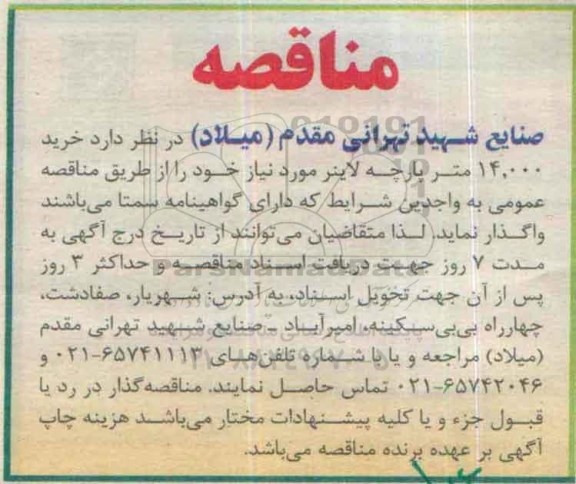 مناقصه
صنایع شهید تهرانی مقدم (میلاد) در نظر دارد خرید
۱۴,۰۰۰ متر پارچه لاینر مورد نیاز خود را از طریق مناقصه
عمومی به واجدین شرایط که دارای گواهینامه سمتا می‌باشند
واگذار نماید. لذا متقاضیان می‌توانند از تاریخ درج آگهی به
مدت ۷ روز جهت دریافت اسناد مناقصه و حداکثر ۳ روز
پس از آن جهت تحویل اسناد، به آدرس: شهریار، صفادشت،
چهارراه بی‌بی‌سکینه، امیرآباد ـ صنایع شهید تهرانی مقدم
(میلاد) مراجعه و یا با شماره تلفن‌های ۶۵۷۴۱۱۱۳-۰۲۱ و
۶۵۷۴۲۰۴۶-۰۲۱ تماس حاصل نمایند. مناقصه‌گذار در رد یا
قبول جزء و یا کلیه پیشنهادات مختار می‌باشد هزینه چاپ
آگهی بر عهده برنده مناقصه می‌باشد.
ParsNamadData